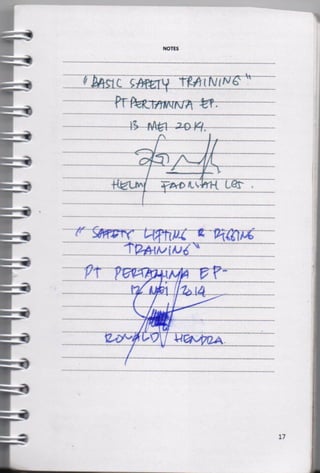 NOTES
"BASIC SAFETY TRAINING"
PT PERTAMINA EP.
13 MEI 2014.
HELMY FADLILAH
"SAFETY LIFTING & RIGGING
TRAINING"
PT PERTAMINA EP-
12 MEI 2014
RONALD HENDRA
17